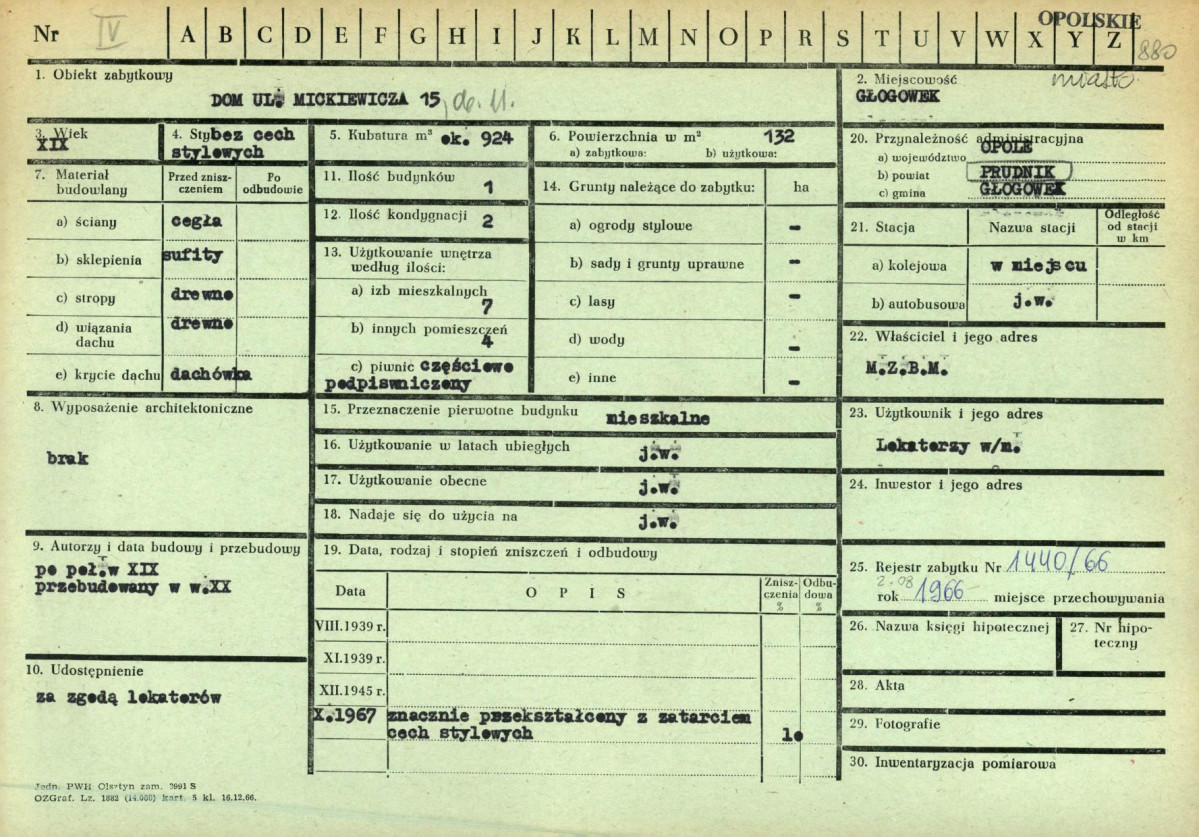 OPOLSKIE
Nr IV A B C D E F G H I J K L M N O P R S T U V W X Y Z 880
1. Obiekt zabytkowy
DOM UL. MICKIEWICZA 15,
2. Miejscowość miasto
GŁOGOWEK
3. Wiek
XIX
4. Styl bez cech
stylowych
5. Kubatura m³
ok. 924
6. Powierzchnia w m² 132
a) zabytkowa: b) użytkowa:
20. Przynależność administracyjna
a) województwo OPOLE
b) powiat PRUDNIK
c) gmina GŁOGOWEK
7. Materiał budowlany
Przed zniszczeniem
Po odbudowie
a) ściany cegła
b) sklepienia sufity
c) stropy drewno
d) wiązania dachu drewno
e) krycie dachu dachówka
11. Ilość budynków 1
12. Ilość kondygnacji 2
13. Użytkowanie wnętrza
według ilości:
a) izb mieszkalnych
7
b) innych pomieszczeń
4
c) piwnic częściowo
podpiwniczony
14. Grunty należące do zabytku: ha
a) ogrody stylowe -
b) sady i grunty uprawne -
c) lasy -
d) wody -
e) inne -
21. Stacja Nazwa stacji Odległość od stacji w km
a) kolejowa w miejscu
b) autobusowa j.w.
22. Właściciel i jego adres
M.Z.B.M.
8. Wyposażenie architektoniczne
brak
15. Przeznaczenie pierwotne budynku mieszkalne
16. Użytkowanie w latach ubiegłych j.w.
17. Użytkowanie obecne j.w.
18. Nadaje się do użycia na j.w.
23. Użytkownik i jego adres
Lokatorzy w/m.
24. Inwestor i jego adres
9. Autorzy i data budowy i przebudowy
po poł.w XIX
przebudowany w w.XX
10. Udostępnienie
za zgodą lokatorów
19. Data, rodzaj i stopień zniszczeń i odbudowy
Data O P I S Zniszczenia % Odbudowa %
VIII.1939 r.
XI.1939 r.
XII.1945 r.
X.1967 znacznie przekształcony z zatarciem
cech stylowych 10
25. Rejestr zabytku Nr 1440/66
2.08
rok 1966 miejsce przechowywania
26. Nazwa księgi hipotecznej
27. Nr hipo-
teczny
28. Akta
29. Fotografie
30. Inwentaryzacja pomiarowa
Jedn. PWH Olsztyn zam. 3991 S
OZGraf. Lz. 1882 (14.000) kart. 5 kl. 16.12.66.